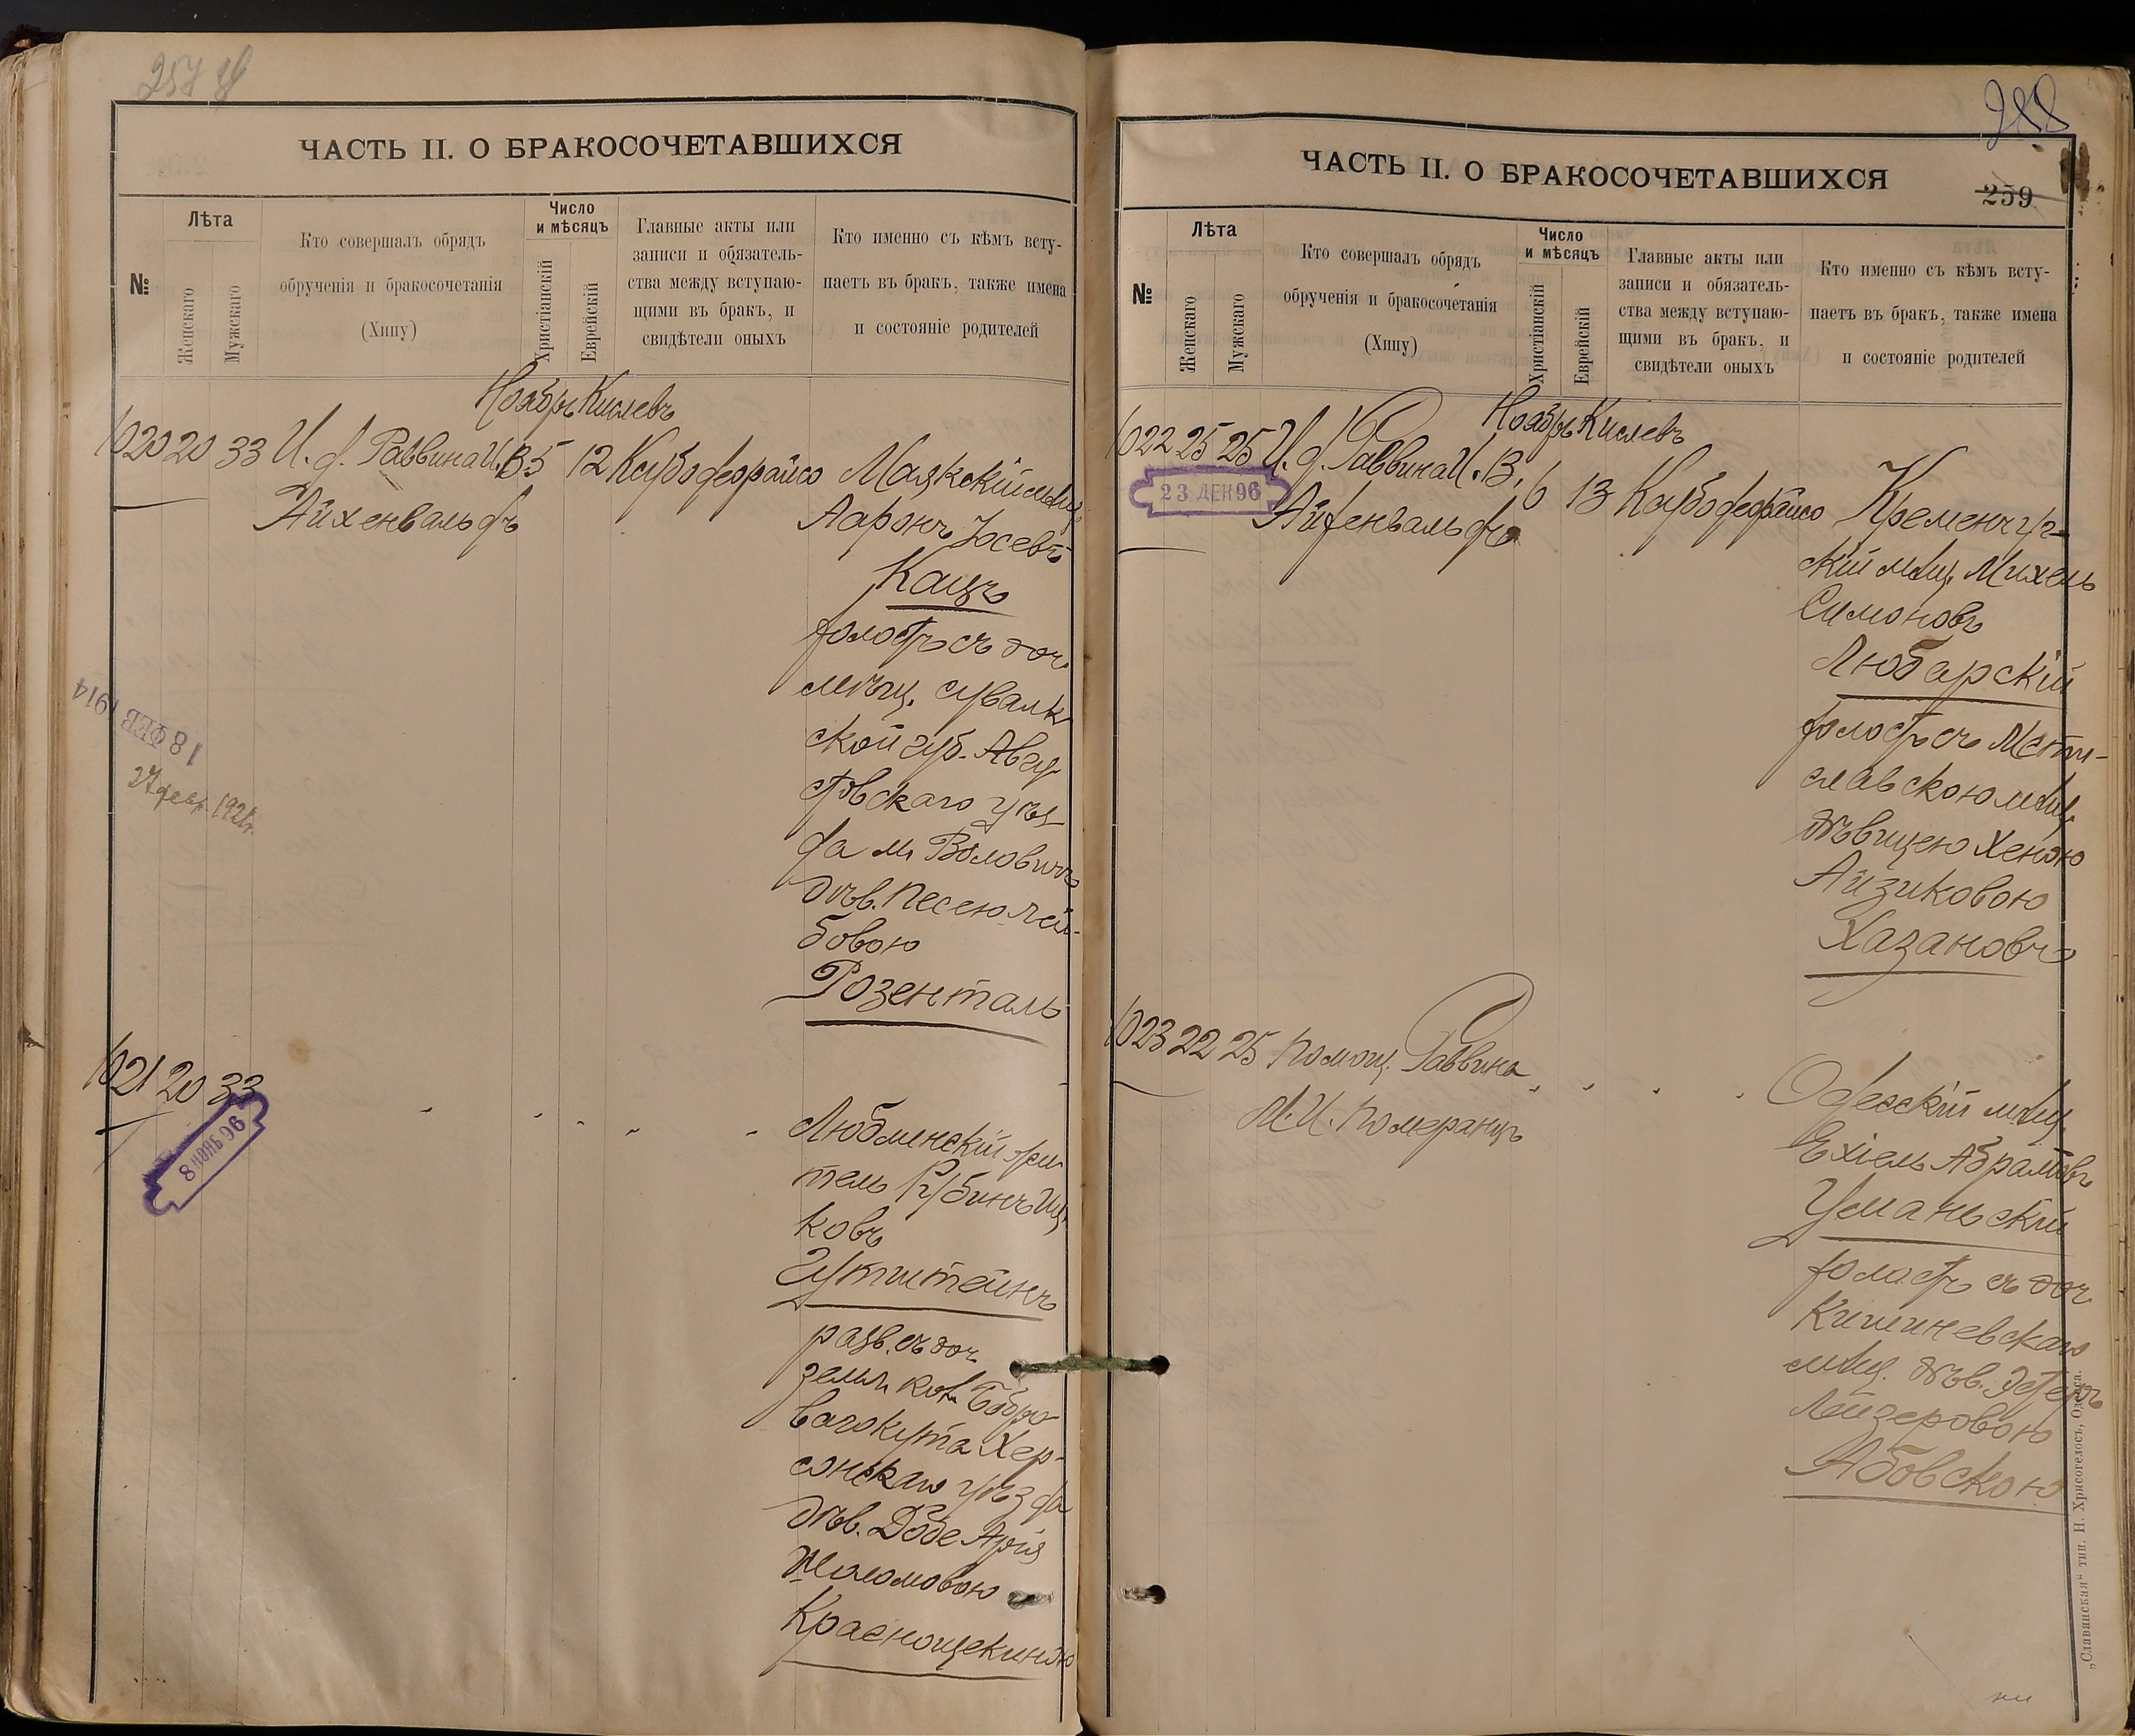 ЧАСТЬ II. О БРАКОСОЧЕТАВШИХСЯ
№
Лѣта
Женскаго
Мужскаго
Кто совершалъ обрядъ
обрученія и бракосочетанія
(Хипу)
Число
и мѣсяцъ
Христіанскій
Еврейскій
Главные акты или
записи и обязатель-
ства между вступаю-
щими въ бракъ, и
свидѣтели оныхъ
Кто именно съ кѣмъ всту-
паетъ въ бракъ, также имена
и состояніе родителей
Ноябрь Кислевъ
1020 20 33 И. д. Раввина И. В. 5 12 Касубо дефрайсо Маякскій мѣщ.
Айхенвальдъ
Ааронъ Іосевъ
Кацъ
холостъ съ доч.
мѣщ. сувалк
ской губ. Авгу
стовскаго уѣз
да м. Воловичъ
дѣв. Песею Лей-
бовою
Розенталь
18 ФЕВ 1914
1021 20 33
8 НОЯБ 96
Люблинскій жи
тель Рубинъ Иц
ковъ
Гутштейнъ
разв. съ доч.
земл. кол. Бобро
вагокута Хер-
сонскаго уѣзда
дѣв. Добе Арія
Шоломовою
Краснощекиною
288
ЧАСТЬ II. О БРАКОСОЧЕТАВШИХСЯ
259
№
Лѣта
Женскаго
Мужскаго
Кто совершалъ обрядъ
обрученія и бракосочетанія
(Хипу)
Число
и мѣсяцъ
Христіанскій
Еврейскій
Главные акты или
записи и обязатель-
ства между вступаю-
щими въ бракъ, и
свидѣтели оныхъ
Кто именно съ кѣмъ всту-
паетъ въ бракъ, также имена
и состояніе родителей
Ноябрь Кислевъ
1022 25 25 И. д. Раввина И. В. 6 13 Касубо дефрайсо Кременчуг-
23 ДЕК 96
Айхенвальдъ
скій мѣщ. Михель
Симоновъ
Любарскій
холостъ съ Мсти-
славскою мѣщ.
дѣвицею Хеною
Айзиковою
Хазановъ
1023 22 25 Помощ. Раввина
М. И. Померанцъ
Одесскій мѣщ.
Ехіель Абрамовъ
Уманьскій
холостъ съ доч.
Кишиневскаго
мѣщ. дѣв. Эстеръ
Лейзеровою
Абовскою
„Славянская“ тип. Н. Хрисогелосъ, Одесса.